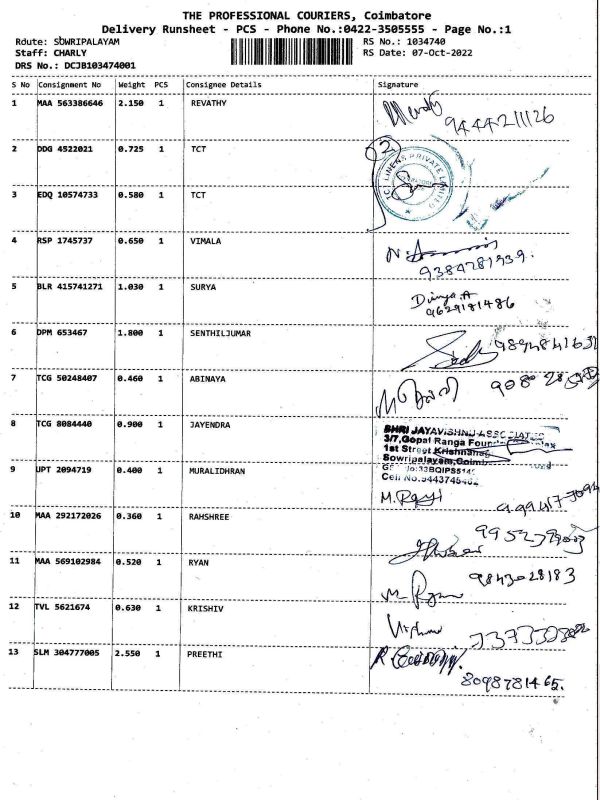 THE PROFESSIONAL COURIERS, Coimbatore
Delivery Runsheet - PCS - Phone No.:0422-3505555 - Page No.:1
Route: SOWRIPALAYAM RS No.: 1034740
Staff: CHARLY RS Date: 07-Oct-2022
DRS No.: DCJB103474001
S No Consignment No Weight PCS Consignee Details Signature
1 MAA 563386646 2.150 1 REVATHY
9444211126
2 DDG 4522021 0.725 1 TCT
TCT LINENS PRIVATE LIMITED
3 EDQ 10574733 0.580 1 TCT
4 RSP 1745737 0.650 1 VIMALA
9384281939.
5 BLR 415741271 1.030 1 SURYA
Divya.A
9629181486
6 DPM 653467 1.800 1 SENTHILJUMAR
7 TCG 50248407 0.460 1 ABINAYA
8 TCG 8084440 0.900 1 JAYENDRA
SHRI JAYAVISHNU ASSOCIATES
3/7,Gopal Ranga
1st Street Krishnanagar
Sowripalayam,
Cell No.
9 UPT 2094719 0.400 1 MURALIDHRAN
10 MAA 292172026 0.360 1 RAHSHREE
11 MAA 569102984 0.520 1 RYAN
9843028183
M. Ryan
12 TVL 5621674 0.630 1 KRISHIV
13 SLM 304777005 2.550 1 PREETHI
8098781465.